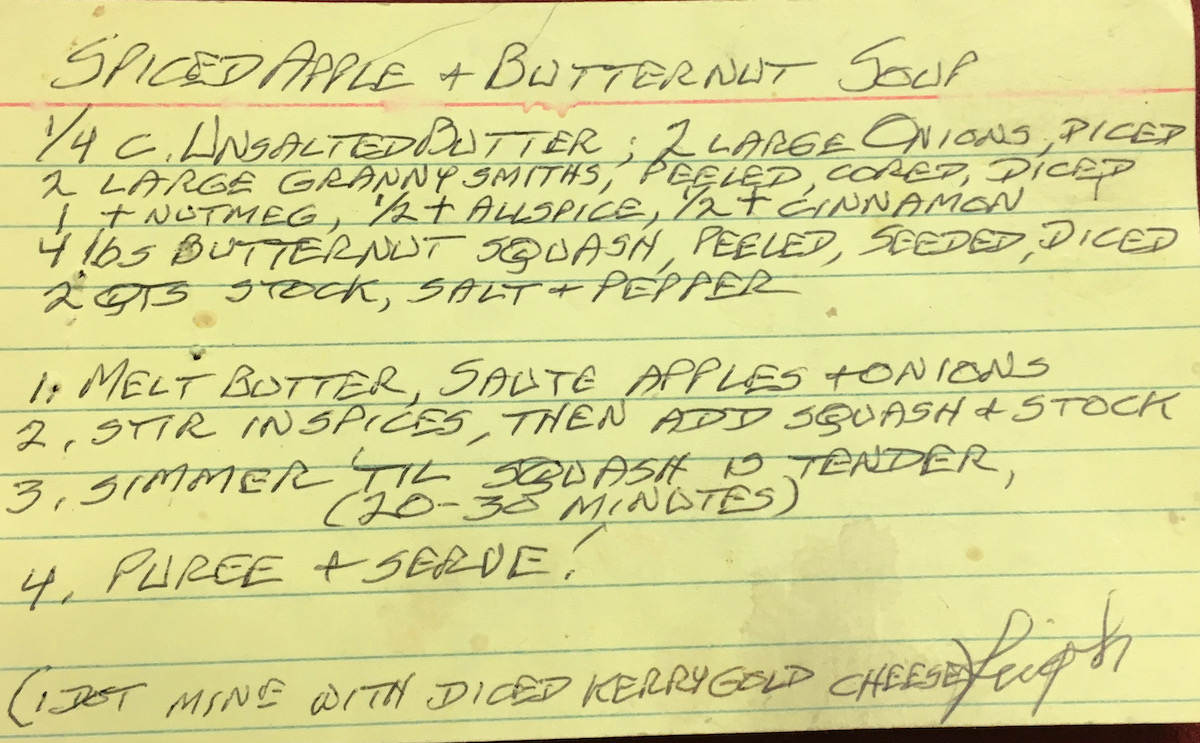 SPICED APPLE + BUTTERNUT SOUP
1/4 C. UNSALTED BUTTER; 2 LARGE ONIONS, DICED
2 LARGE GRANNY SMITHS, PEELED, CORED, DICED
1 t NUTMEG, 1/2 t ALLSPICE, 1/2 t CINNAMON
4 lbs BUTTERNUT SQUASH, PEELED, SEEDED, DICED
2 QTS STOCK, SALT + PEPPER
1. MELT BUTTER, SAUTE APPLES + ONIONS
2. STIR IN SPICES, THEN ADD SQUASH + STOCK
3. SIMMER 'TIL SQUASH IS TENDER,
(20-30 MINUTES)
4. PUREE + SERVE!
(I DOT MINE WITH DICED KERRYGOLD CHEESE)